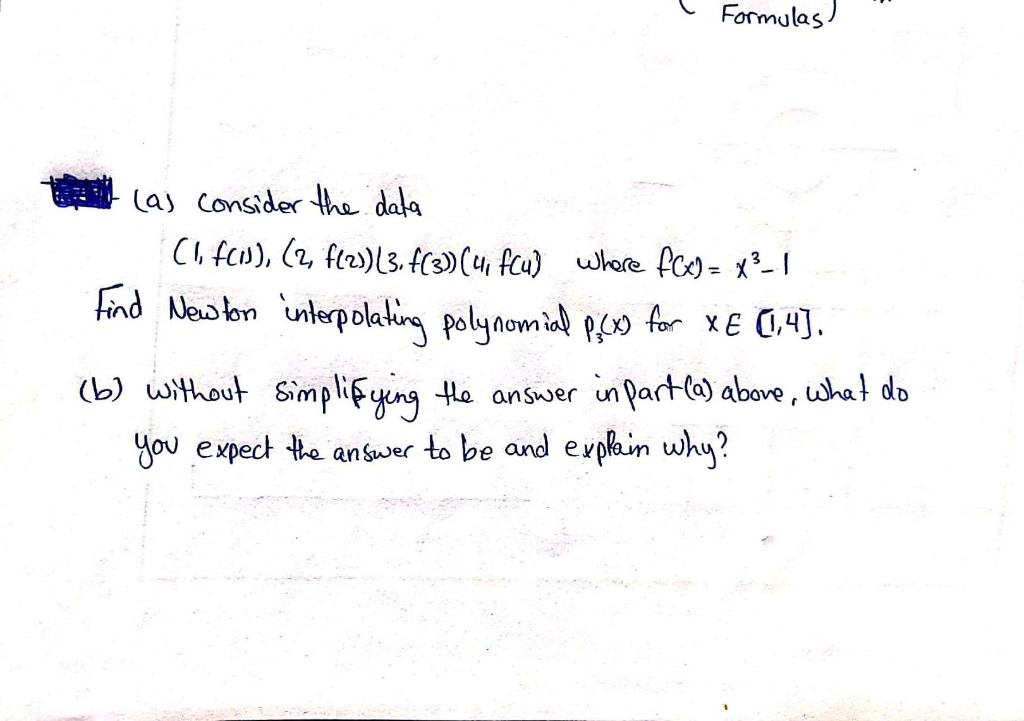 ( Formulas)
(a) consider the data
(1, f(1)), (2, f(2))(3, f(3))(4, f(4) where f(x) = x³-1
Find Newton interpolating polynomial p₃(x) for x ∈ [1,4].
(b) without simplifying the answer in part (a) above, what do
you expect the answer to be and explain why?